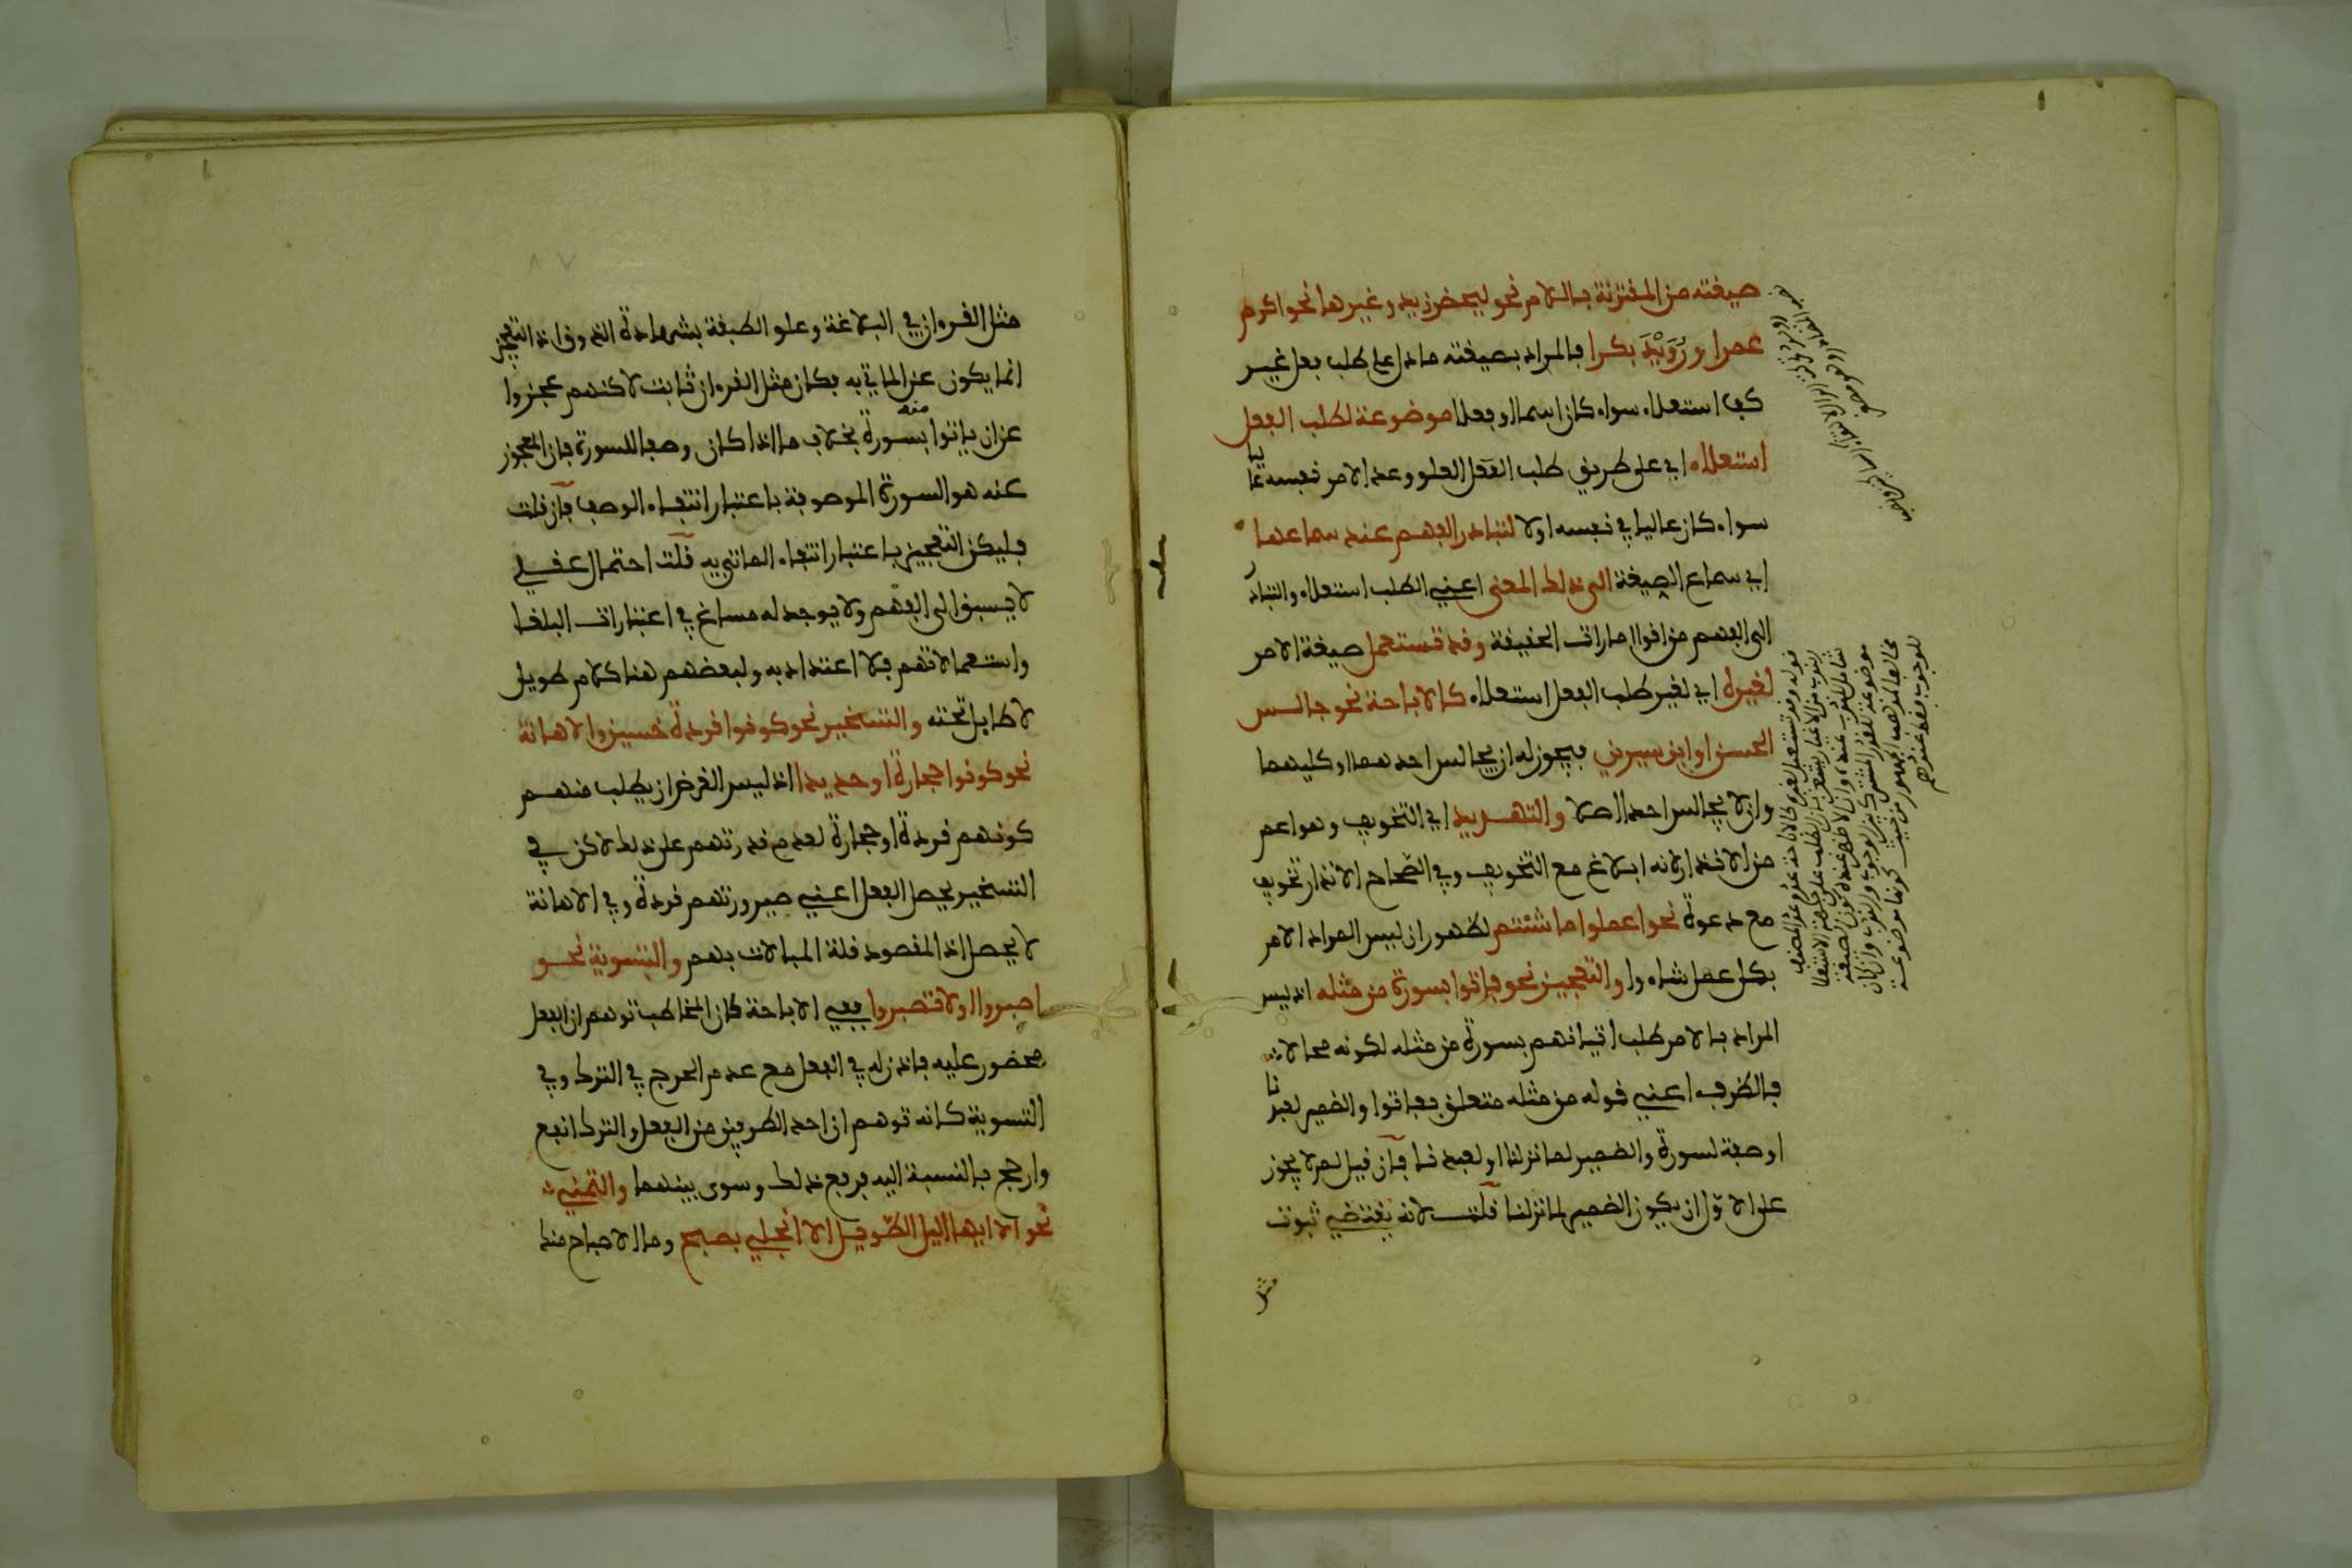 صيغته من المقترنة باللام نحو ليحضر زيد وغيرها نحو اكرم
عمرا ورُوَيْدَ بكرا فالمراد بصيغته ما دل على طلب فعل غير
كف استعلاء سواء كان اسما او فعلا موضوعة لطلب الفعل
استعلاء اي على طريق طلب العلو وعد الامر نفسه عاليا
سواء كان عاليا في نفسه اولا لتبادر الفهم عند سماعها
اي سماع الصيغة الى ذلك المعنى اعني الطلب استعلاء والتبادر
الى الفهم من اقوا امارات الحقيقة وقد تستعمل صيغة الامر
لغيره اي لغير طلب الفعل استعلاء كالاباحة نحو جالس
الحسن او ابن سيرين فيجوز له ان يجالس احدهما او كليهما
وان لا يجالس احدا اصلا والتهديد اي التخويف وهو اعم
من الانذار لانه ابلاغ مع التخويف وفي الصّحاح الانذار تخويف
مع دعوة نحو اعملوا ما شئتم لظهور ان ليس المراد الامر
بكل عمل شاءوا والتعجيز نحو فاتوا بسورة من مثله اذ ليس
المراد بالامر طلب اتيانهم بسورة من مثله لكونه محالا
فالظرف اعني قوله من مثله متعلق بفاتوا والضمير لعبدنا
او صفة لسورة والضمير لما نزلنا او لعبدنا فان قيل لم لا يجوز
على الاوّل ان يكون الضمير لما نزلنا قلت لانه يقتضي ثبوت
مثل
٨٧
مثل القروان في البلاغة وعلو الطبقة بشهادة الذوق اذ التعجيز
انما يكون عن الماتي به فكان مثل القروان ثابت لاكنهم عجزوا
عن ان ياتوا منه بسورة بخلاف ما اذا كان وصفا للسورة فان المعجوز
عنه هو السورة الموصوفة باعتبار انتفاء الوصف فان قلت
فليكن التعجيز باعتبار انتفاء الماتي به قلت احتمال عقلي
لا يسبق الى الفهم ولا يوجد له مساغ في اعتبارات البلغا
واستعمالاتهم فلا اعتداد به ولبعضهم هنا كلام طويل
لا طايل تحته والتسخير نحو كونوا قردة خسين والاهانة
نحو كونوا حجارة او حديدا اذ ليس الغرض ان يطلب منهم
كونهم قردة او حجارة لعدم قدرتهم على ذلك لاكن في
التسخير يحصل الفعل اعني صيرورتهم قردة وفي الاهانة
لا يحصل اذ المقصود قلة المبالات بهم والتسوية نحو
اصبروا او لا تصبروا ففي الاباحة كان المخاطب توهم ان الفعل
محضور عليه فاذن له في الفعل مع عدم الحرج في الترك وفي
التسوية كانه توهم ان احد الطرفين من الفعل والترك انفع
وارجح بالنسبة اليه فرفع ذلك وسوى بينهما والتمني
نحو الا ايها اليل الطّويل الا انجلي بصبح وما الاصباح منك